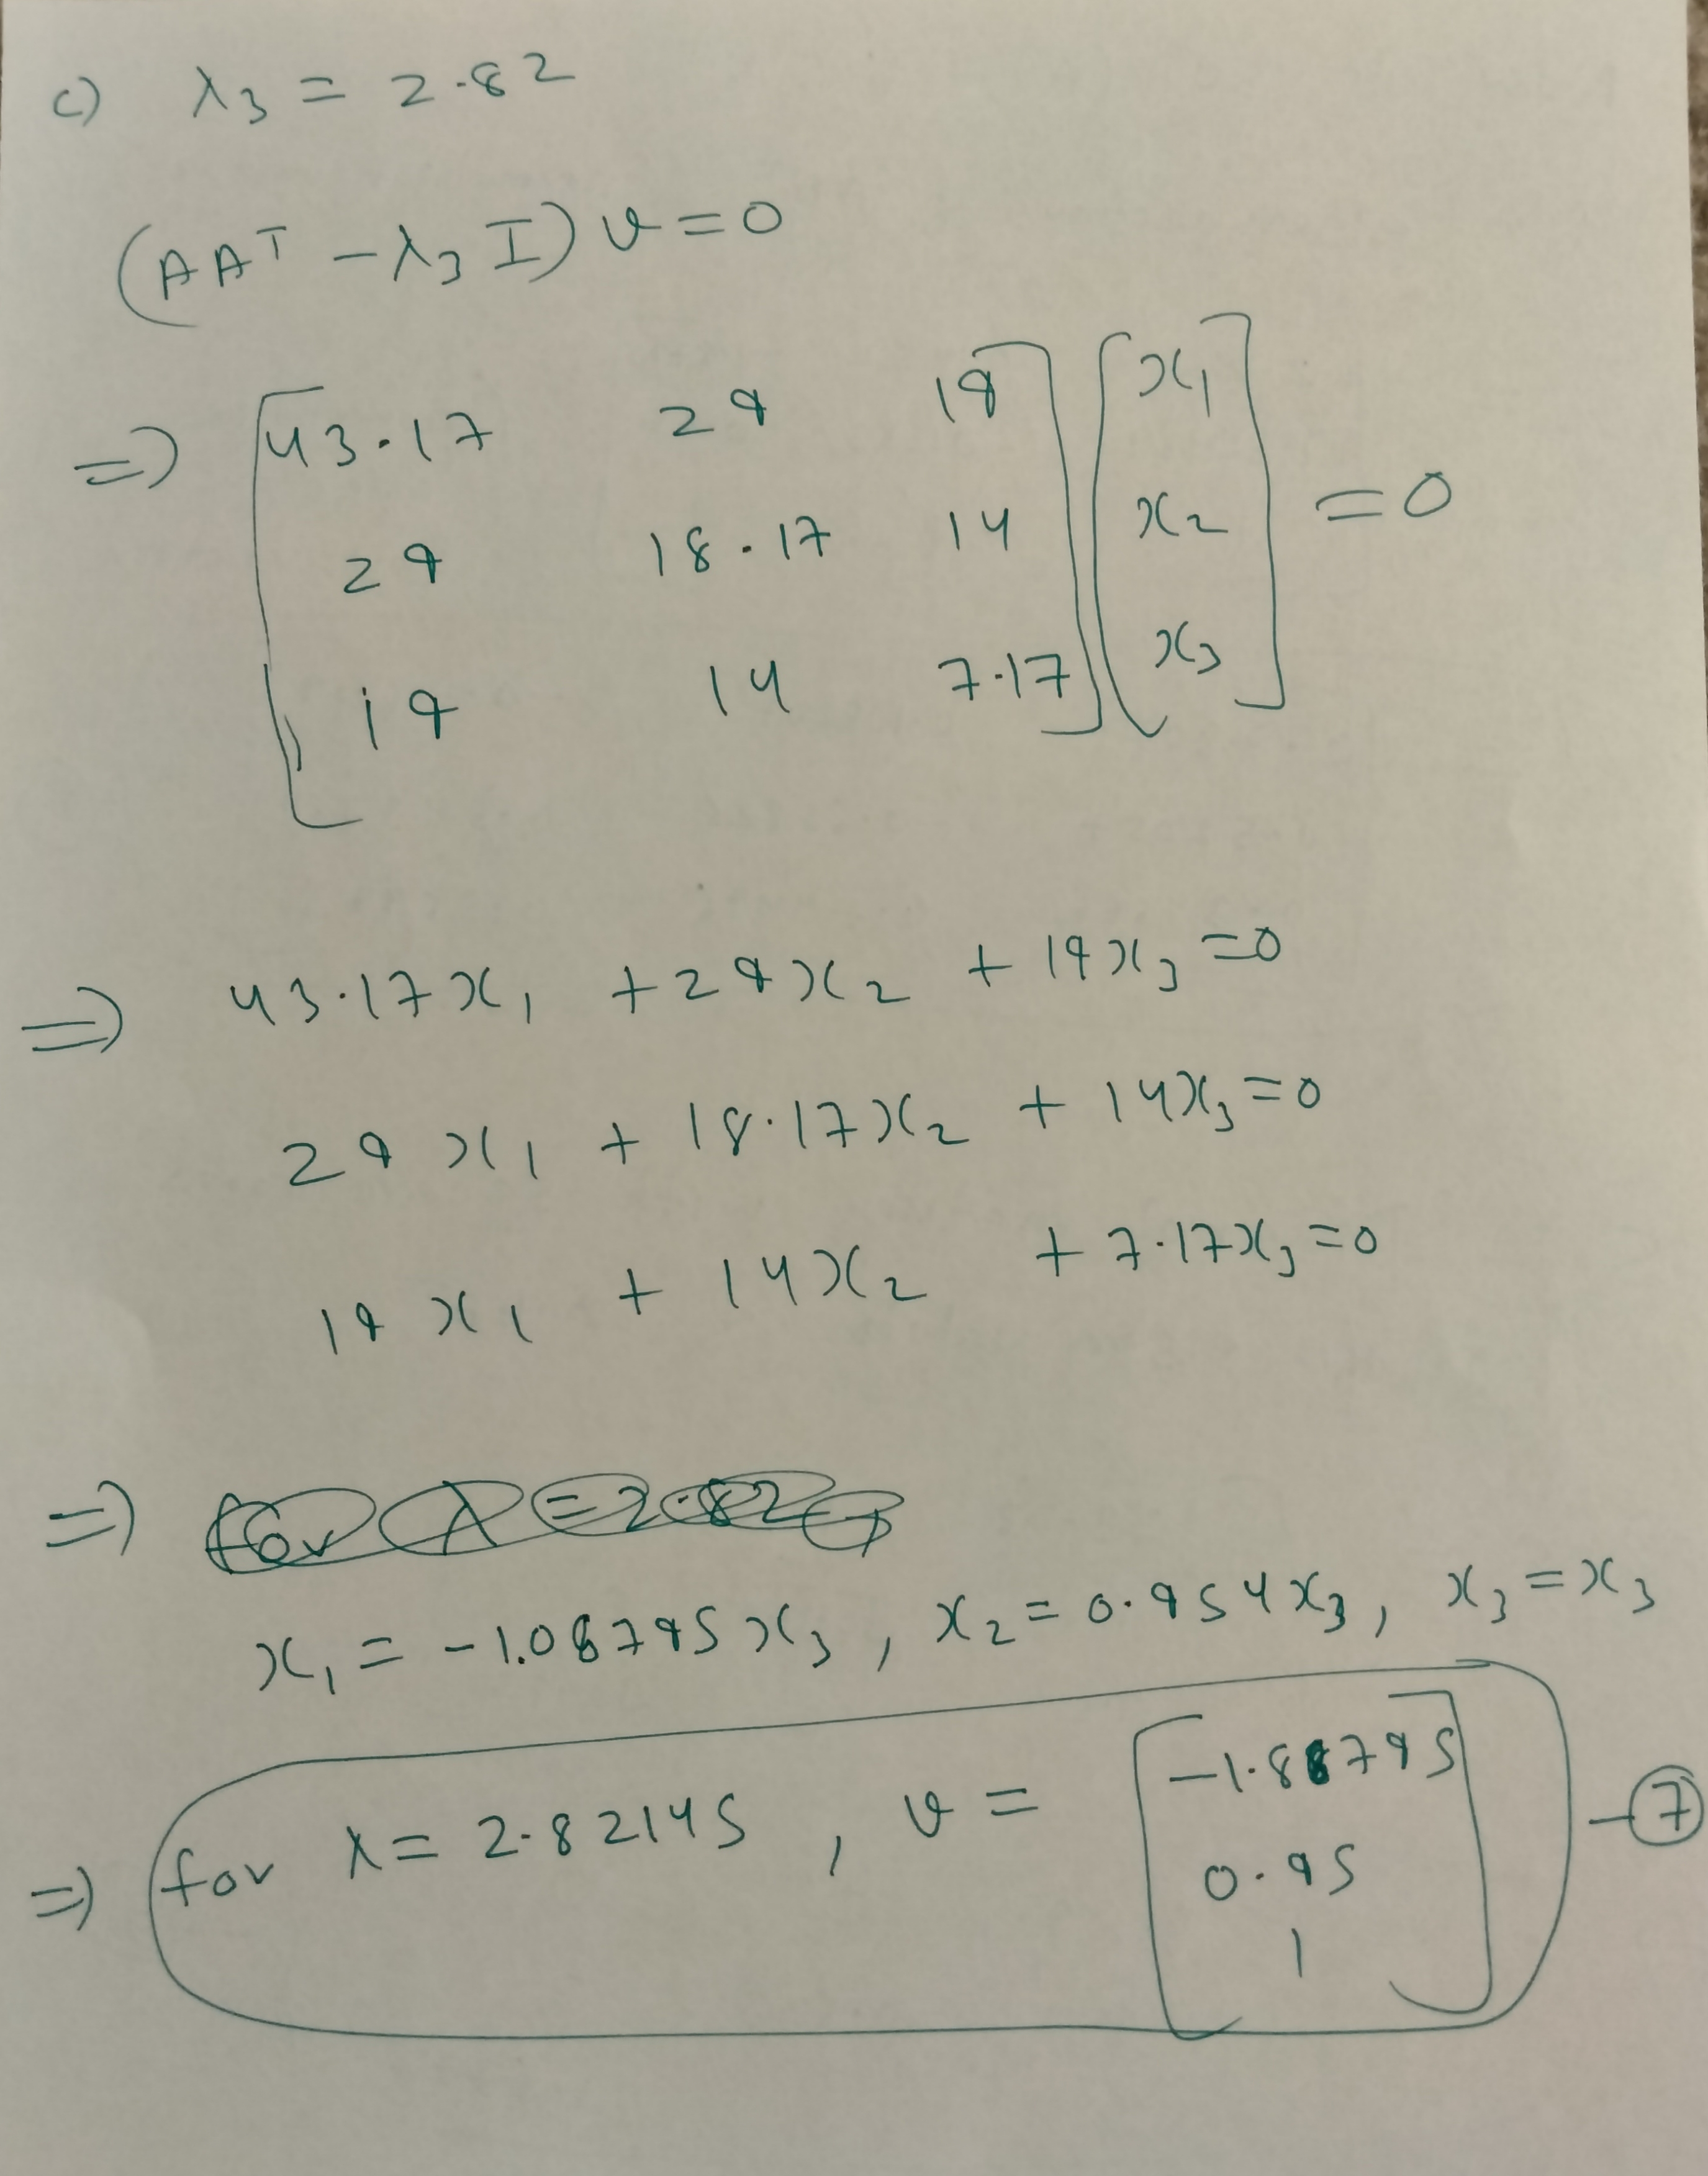 c) λ₃ = 2.82
(AAᵀ - λ₃ I) v = 0
⇒ [43.17 29 19] [x₁]
[29 18.17 14] [x₂] = 0
[19 14 7.17] [x₃]
⇒ 43.17x₁ + 29x₂ + 19x₃ = 0
29x₁ + 18.17x₂ + 14x₃ = 0
19x₁ + 14x₂ + 7.17x₃ = 0
⇒ for λ = 2.82 →
x₁ = -1.08795x₃, x₂ = 0.954x₃, x₃ = x₃
⇒ for λ = 2.82145, v = [-1.88795] - ⑦
[0.95]
[1]